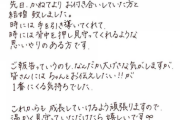 先日、かねてよりお付き合いしていた方と
結婚致しました。
時には手を引き導いてくれて、
時には背中を押し見守ってくれるような
思いやりのある方です。
ご報告っていうのも、なんだか大げさな気がしますが、
皆さんにはちゃんとお伝えしたい!!が
1番にくる気持ちでした。
これからも成長していけるよう頑張りますので
温かく見守っていただけたら嬉しいです